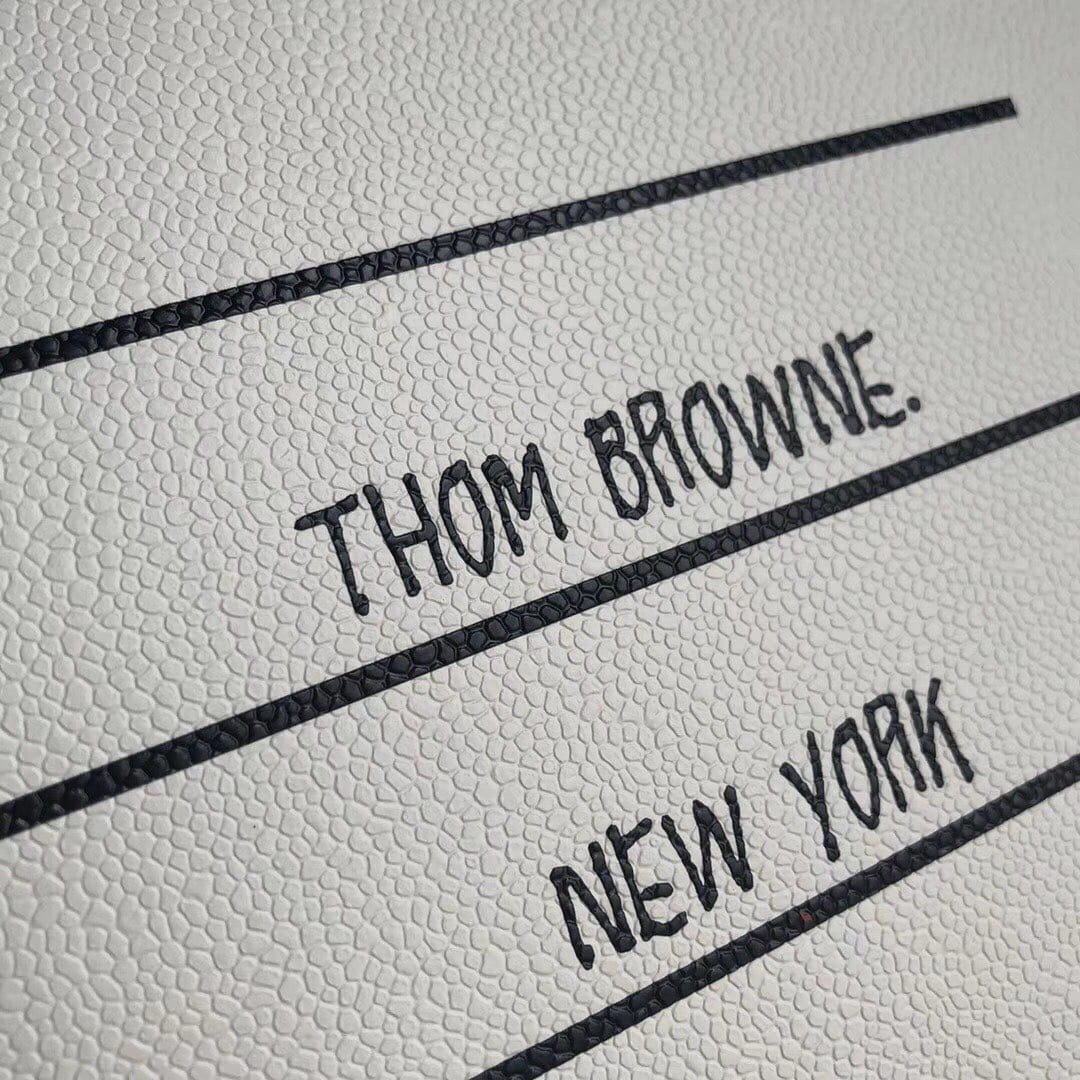 THOM BROWNE.
NEW YORK